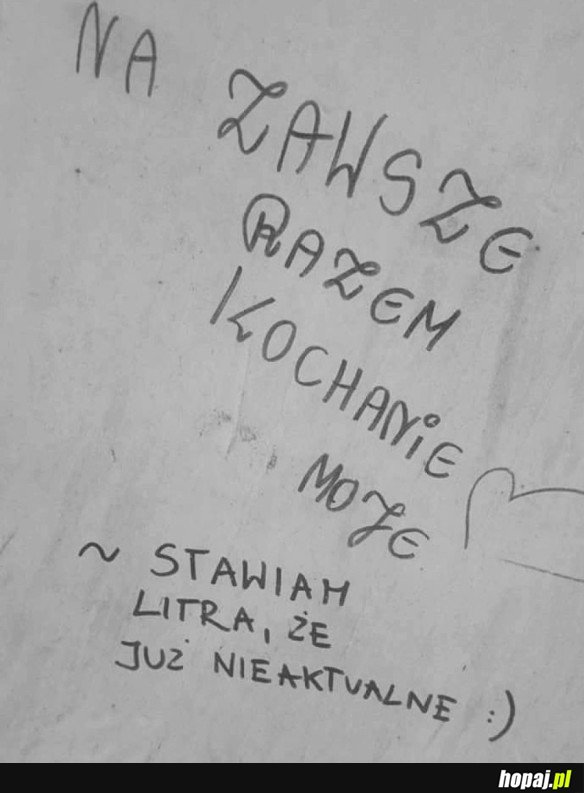 NA ZAWSZE
RAZEM
KOCHANIE
MOJE
~ STAWIAM
LITRA, ŻE
JUŻ NIEAKTUALNE :)
hopaj.pl